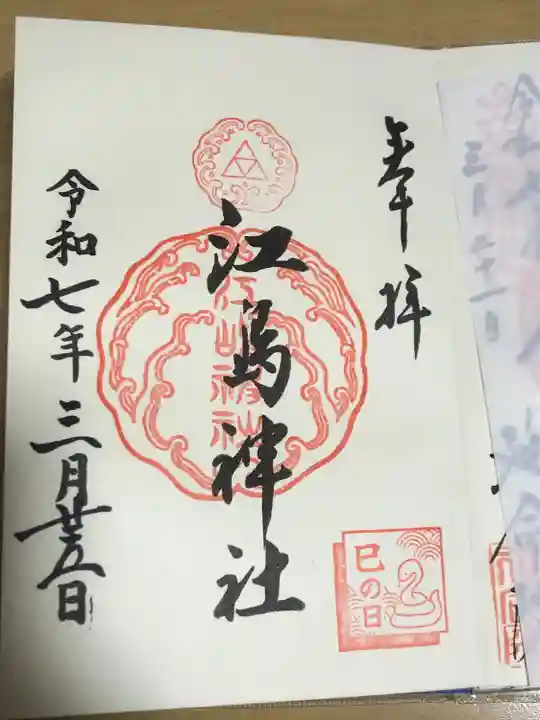 奉拝
江島神社
巳の日
令和七年三月廿五日